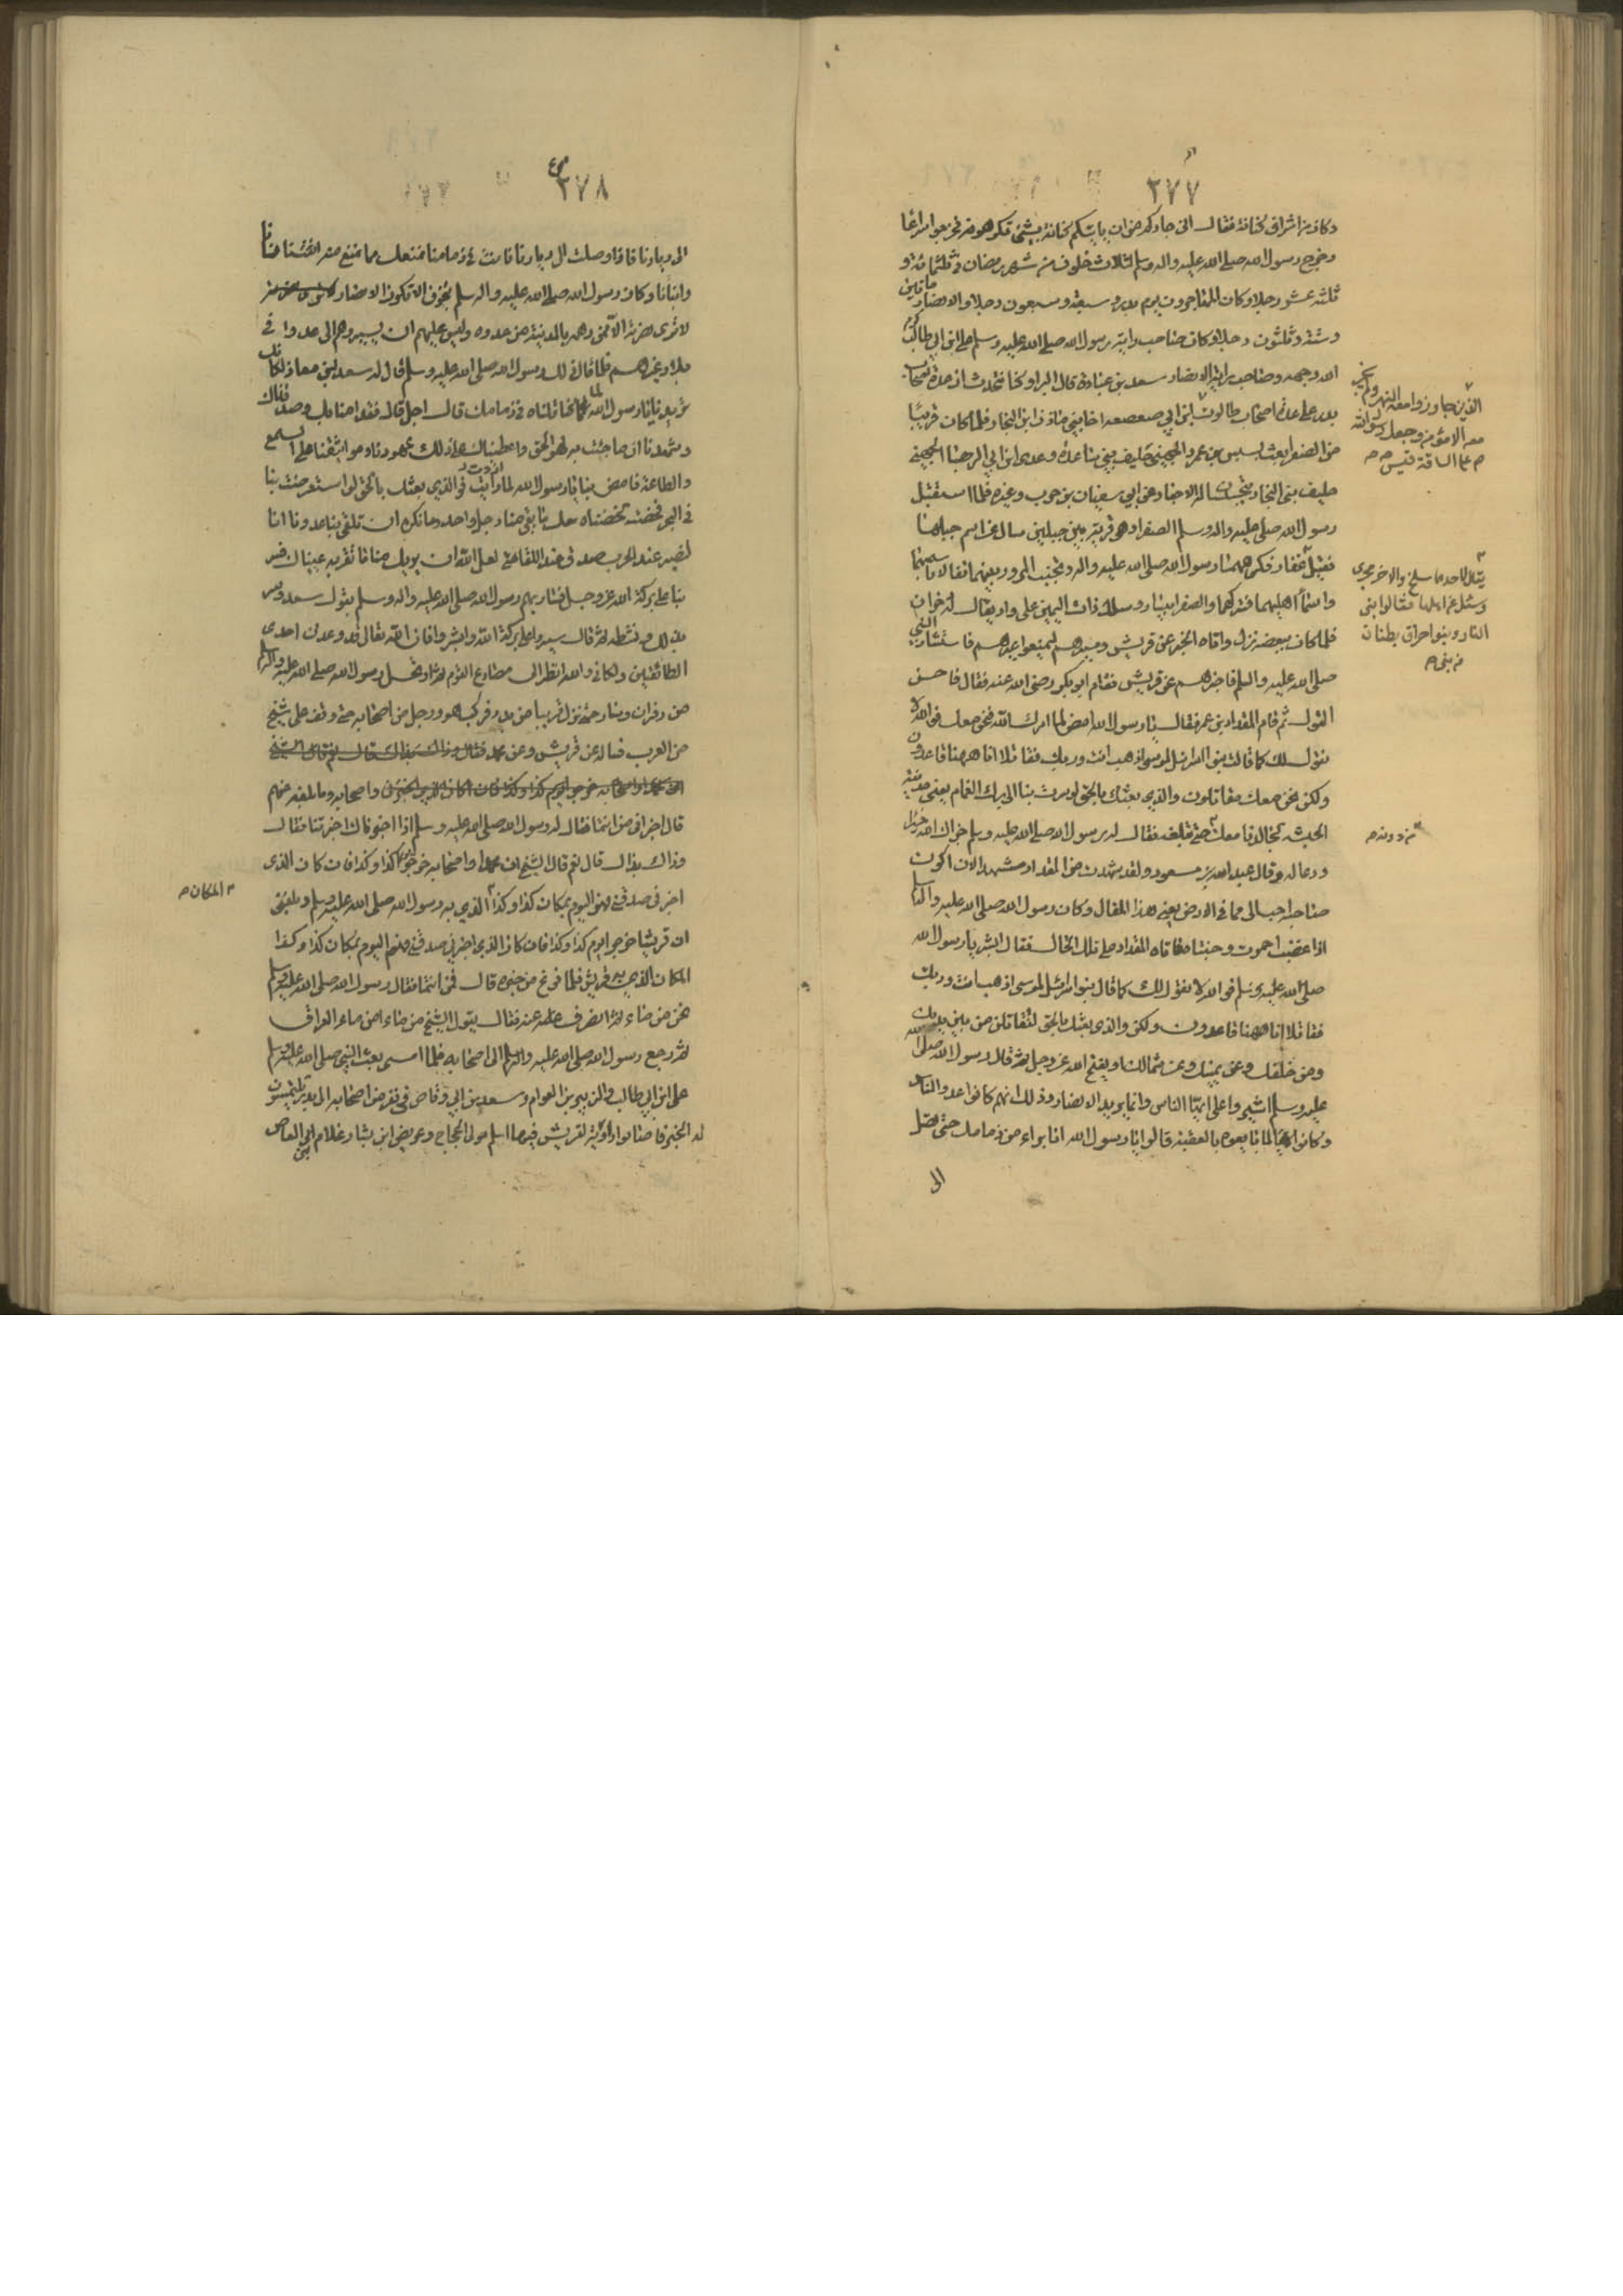 ٣٧٧
وكان من اشراف كنانة فقال انى جار لكم من ان ياتيكم كنانة بشئ تكرهونه فخرجوا سراعا
وخرج رسول الله صلى الله عليه واله وسلم لثلاث خلون من شهر رمضان فى ثلثمائة و
ثلثة عشر رجلا وكان المهاجرون يوم بدر سبعة وسبعون رجلا والانصار مائتين
وستة وثلثون رجلا وكان صاحب راية رسول الله صلى الله عليه وسلم على ابن ابى طالب كرم
الله وجهه وصاحب راية الانصار سعد بن عبادة قال البراء وكنا نتحدث ان عدة اصحاب
بدر على عدة اصحاب طالوت ابى صعصعه اخا بنى مازن ابن النجار فلما كان قريبا
من الصفرا بعث بسبس بن عمرو الجهينى حليف بنى ساعده وعدى ابن ابى الرغبا الجهينى
حليف بنى النجار يتجسسان الاخبار عن ابى سفيان بن حرب وغيره فلما استقبل
رسول الله صلى الله عليه واله وسلم الصفرا وهى قرية بين جبلين سال عن اسم جبلهما
فقيل غفار فكرههما رسول الله صلى الله عليه واله وتجنب المرور بينهما تفالا باسمهما
واسما اهليهما فتركهما والصفرا بيسار وسلك ذات اليمين على واد يقال له ذفران
فلما كان ببعضه نزل واتاه الخبر عن قريش ومسيرهم ليمنعوا عيرهم فاستشار النبى
صلى الله عليه والسلم فاخبرهم عن قريش فقام ابو بكر رضى الله عنه فقال فاحسن
القول ثم قام المقداد بن عمر فقال يا رسول الله امض لما امرك الله فنحن معك فوالله لا
نقول لك كما قالت بنو اسرائيل لموسى اذهب انت وربك فقاتلا انا ههنا قاعدون
ولكن نحن معك مقاتلون والذى بعثك بالحق لو سرت بنا الى برك الغماد يعنى مدينة
الحبشه لجالدنا معك حتى تبلغه فقال له رسول الله صلى الله عليه وسلم جزاك الله خيرا
ودعا له وقال عبد الله بن مسعود ولقد شهدت من المقداد مشهدا لان اكون
صاحبه احب الى مما فى الارض يعنى هذا المقال وكان رسول الله صلى الله عليه واله وسلم
اذا غضب احمرت وجنتاه فاتاه المقداد على تلك الحال فقال ابشر يا رسول الله
صلى الله عليه وسلم فوالله لا نقول لك كما قال بنو اسرائيل لموسى اذهب انت وربك
فقاتلا انا ههنا قاعدون ولكن والذى بعثك بالحق لنقاتلن من بين يديك
ومن خلفك وعن يمينك وعن شمالك او يفتح الله عز وجل ثم قال رسول الله صلى الله
عليه وسلم اشيروا على ايها الناس وانما يريد الانصار وذلك انهم كانوا عدد الناس
وكانوا لما بايعوه بالعقبة قالوا يا رسول الله انا براء من ذمامك حتى تصل
الى
الذين جاوزوا معه النهر ولم يجز
معه الا مؤمن وجعل رسول الله
ص على الساقة قيس ص
يقال لاحدهما مسلح والاخر مخرى
وسئل عن اهلهما فقالوا بنى
النار وبنو احراق بطنان
من بنى ص
من دونه ص
٣٧٨
الى ديارنا فاذا وصلت الى ديارنا فانت فى ذمامنا نمنعك مما نمنع منه انفسنا
وابنانا وكان رسول الله صلى الله عليه واله وسلم يتخوف الا تكون الانصار
لا ترى نصرته الا ممن دهمه بالمدينة من عدوه وليس عليهم ان يسير بهم الى عدو فى
بلاد غيرهم فلما قال ذلك رسول الله صلى الله عليه وسلم قال له سعد ابن معاذ لكانك
تريدنا يا رسول الله قال اجل قال فقد امنا بك وصدقناك
وشهدنا ان ما جئت به لهو الحق واعطيناك على ذلك عهودنا ومواثيقنا على السمع
والطاعة فامض بنا يا رسول الله لما اردت فو الذى بعثك بالحق لو استعرضت بنا
فى البحر فخضته لخضناه معك ما بقى منا رجل واحد وما نكره ان تلقى بنا عدونا انا
لصبر عند الحرب صدق عند اللقا لعل الله ان يريك منا ما تقر به عيناك فسر
بنا على بركة الله عز وجل فسار بهم رسول الله صلى الله عليه واله وسلم بقول سعد وسر
بذلك ونشطه ثم قال سيروا على بركة الله وابشروا فان الله تعالى قد وعدنى احدى
الطائفتين ولكانى والله انظر الى مصارع القوم ثم ارتحل رسول الله صلى الله عليه واله وسلم
من ذفران وسار حتى نزل قريبا من بدر فركب هو ورجل من اصحابه حتى وقف على شيخ
من العرب فساله عن قريش وعن محمد واصحابه وما بلغه عنهم
قال اخبرانى من انتما فقال له رسول الله صلى الله عليه وسلم اذا اخبرتنا اخبرناك فقال
وذاك بذاك قال نعم قال الشيخ ان محمدا واصحابه خرجوا يوم كذا وكذا فان كان الذى
اخبرنى صدقنى فهو اليوم بمكان كذا وكذا الذى به رسول الله صلى الله عليه وسلم وبلغنى
ان قريشا خرجوا يوم كذا وكذا فان كان الذى اخبرنى صدقنى فهم اليوم بمكان كذا وكذا
المكان الذى به قريش فلما فرغ من خبره قال فمن انتما فقال رسول الله صلى الله عليه وسلم
نحن من ماء ثم انصرف عنه فقال يقول الشيخ من ماء امن ماء العراق
ثم رجع رسول الله صلى الله عليه واله وسلم الى اصحابه فلما امسى بعث النبى صلى الله عليه وسلم
على ابن ابى طالب والزبير بن العوام وسعد بن ابى وقاص فى نفر من اصحابه الى بدر يلتمسون
له الخبر فاصابوا راوية لقريش فيها اسلم مولى الحجاج وعريض ابن يسار غلام ابى العاص
بنى
المكان ص